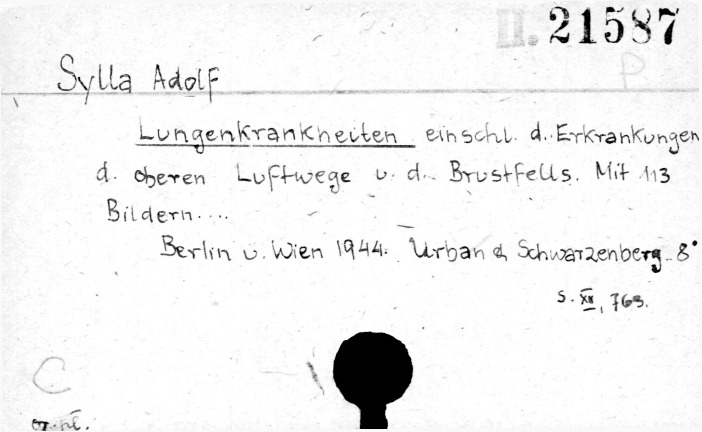 II. 21587
P
Sylla Adolf
Lungenkrankheiten einschl. d. Erkrankungen
d. oberen Luftwege u. d. Brustfells. Mit 113
Bildern....
Berlin u. Wien 1944. Urban & Schwarzenberg. 8°
S. XII, 763.
C